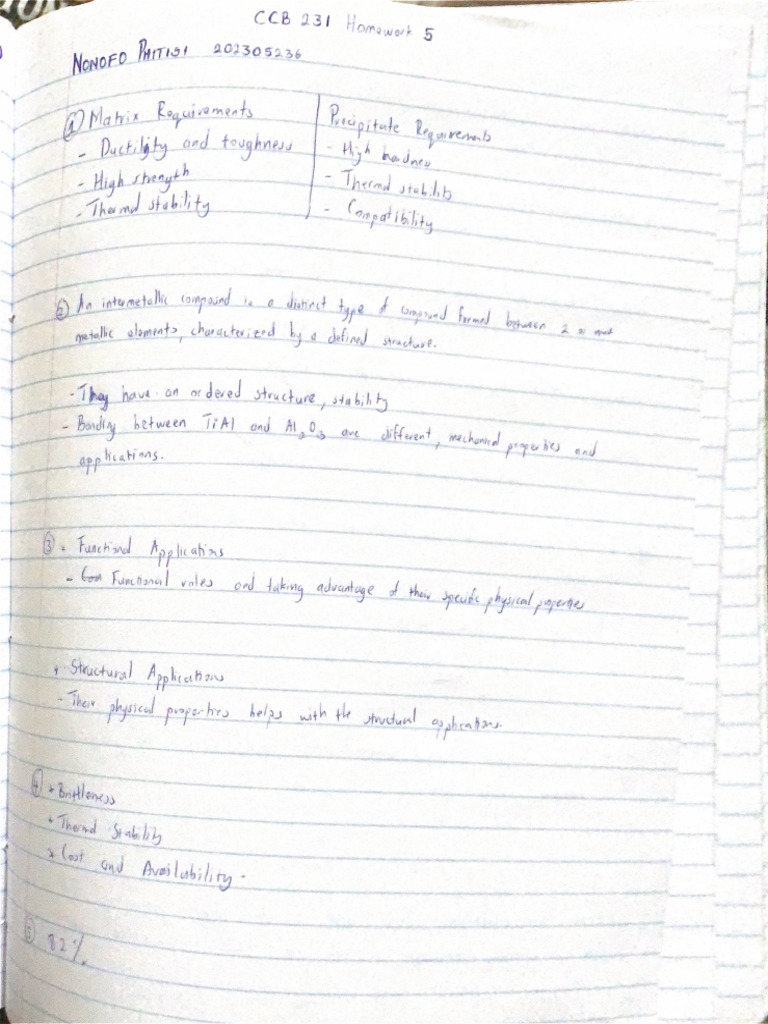 CCB 231 Homework 5
NONOFO PHITISI 202305236
① Matrix Requirements
- Ductility and toughness
- High strength
- Thermal stability
Precipitate Requirements
- High hardness
- Thermal stability
- Compatibility
② An intermetallic compound is a distinct type of compound formed between 2 or more
metallic elements, characterized by a defined structure.
- They have an ordered structure, stability
- Bonding between TiAl and Al₂O₃ are different, mechanical properties and
applications.
③ * Functional Applications
- Functional roles and taking advantage of their specific physical properties
* Structural Applications
- Their physical properties helps with the structural applications.
④ * Brittleness
* Thermal Stability
* Cost and Availability.
⑤ 82%